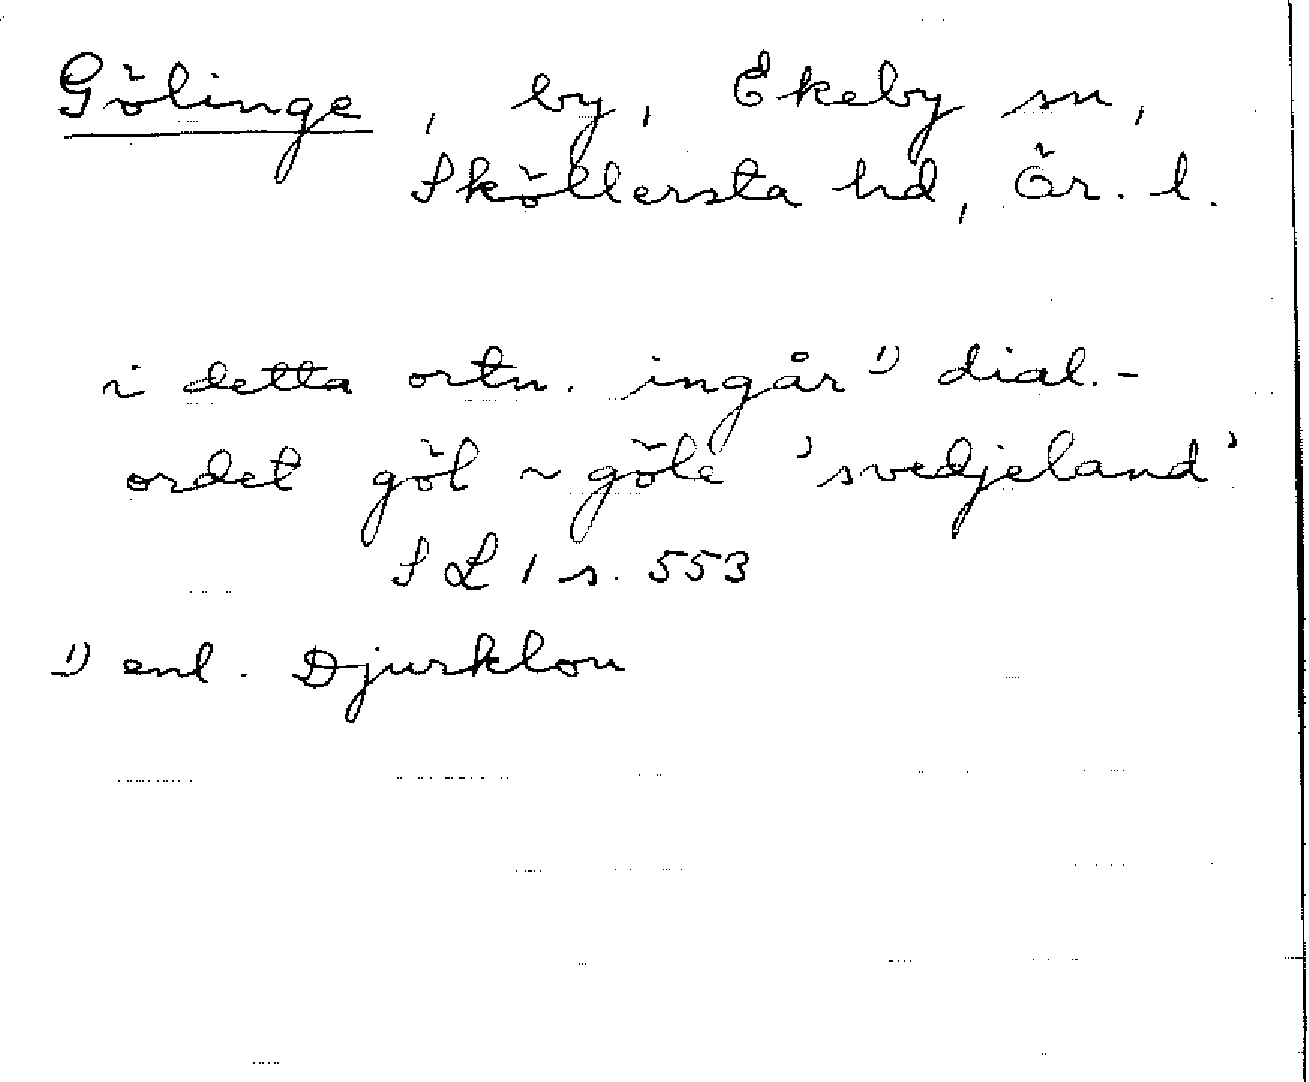 Gölinge, by, Ekeby sn,
Sköllersta hd, Ör. l.
i detta ortn. ingår 1) dial.-
ordet göl ~ göle 'svedjeland'
SL 1 s. 553
1) enl. Djurklou